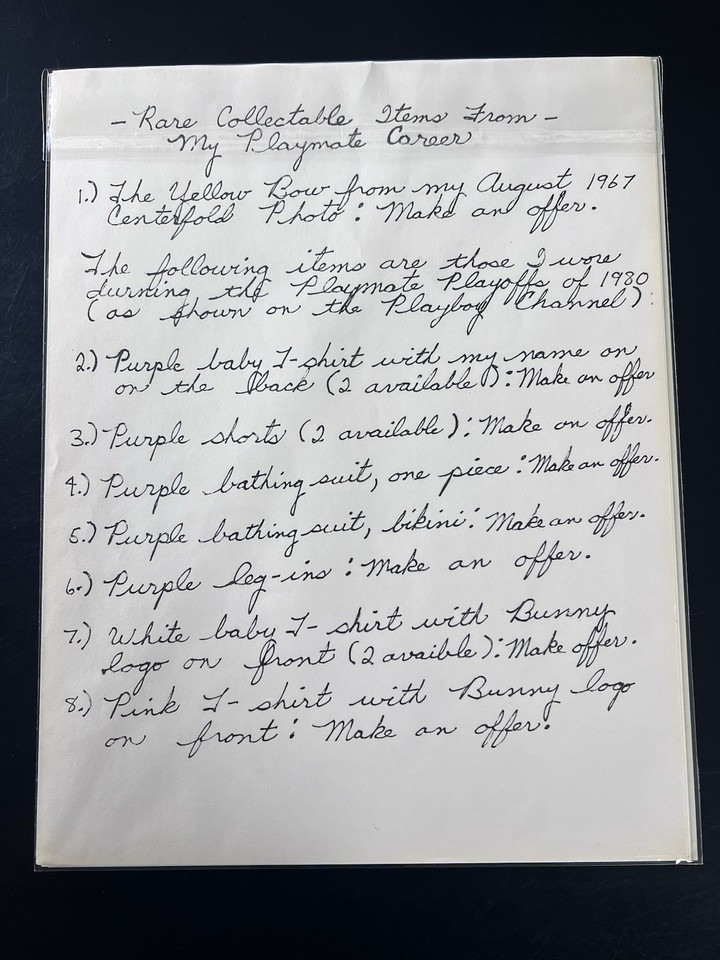 - Rare Collectable Items From -
My Playmate Career
1.) The Yellow Bow from my August 1967
Centerfold Photo: Make an offer.
The following items are those I wore
durning the Playmate Playoffs of 1980
(as shown on the Playboy Channel):
2.) Purple baby T-shirt with my name on
on the back (2 available): Make an offer
3.) Purple shorts (2 available): Make an offer.
4.) Purple bathing suit, one piece: Make an offer.
5.) Purple bathing suit, bikini: Make an offer.
6.) Purple leg-ins: Make an offer.
7.) White baby T-shirt with Bunny
logo on front (2 avaible): Make offer.
8.) Pink T-shirt with Bunny logo
on front: Make an offer.